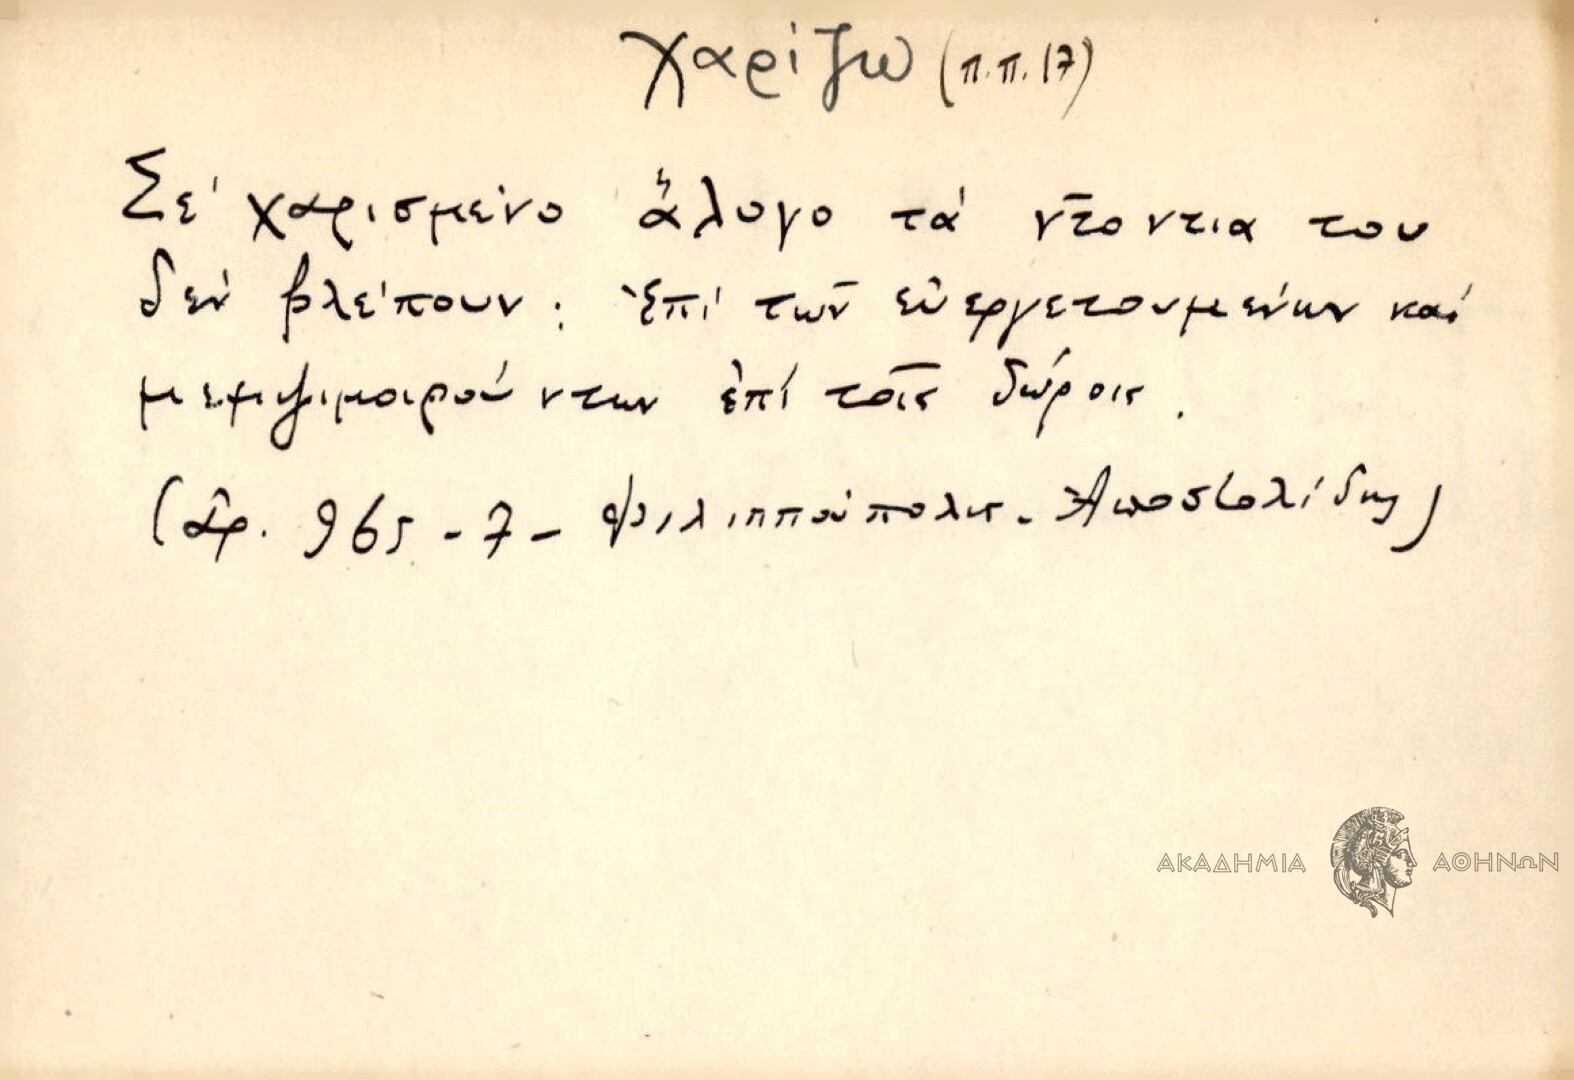 χαρίζω (π.π. 17)
Σέ χαρισμένο ἄλογο τά ντοντια του
δέν βλέπουν : Ἐπί τῶν εὐεργετουμένων καί
μεμψιμοιρούντων ἐπί τοῖς δώροις.
(Ἀρ. 965 - 7 - Φιλιππούπολις. Ἀποστολίδης)
ΑΚΑΔΗΜΙΑ ΑΘΗΝΩΝ